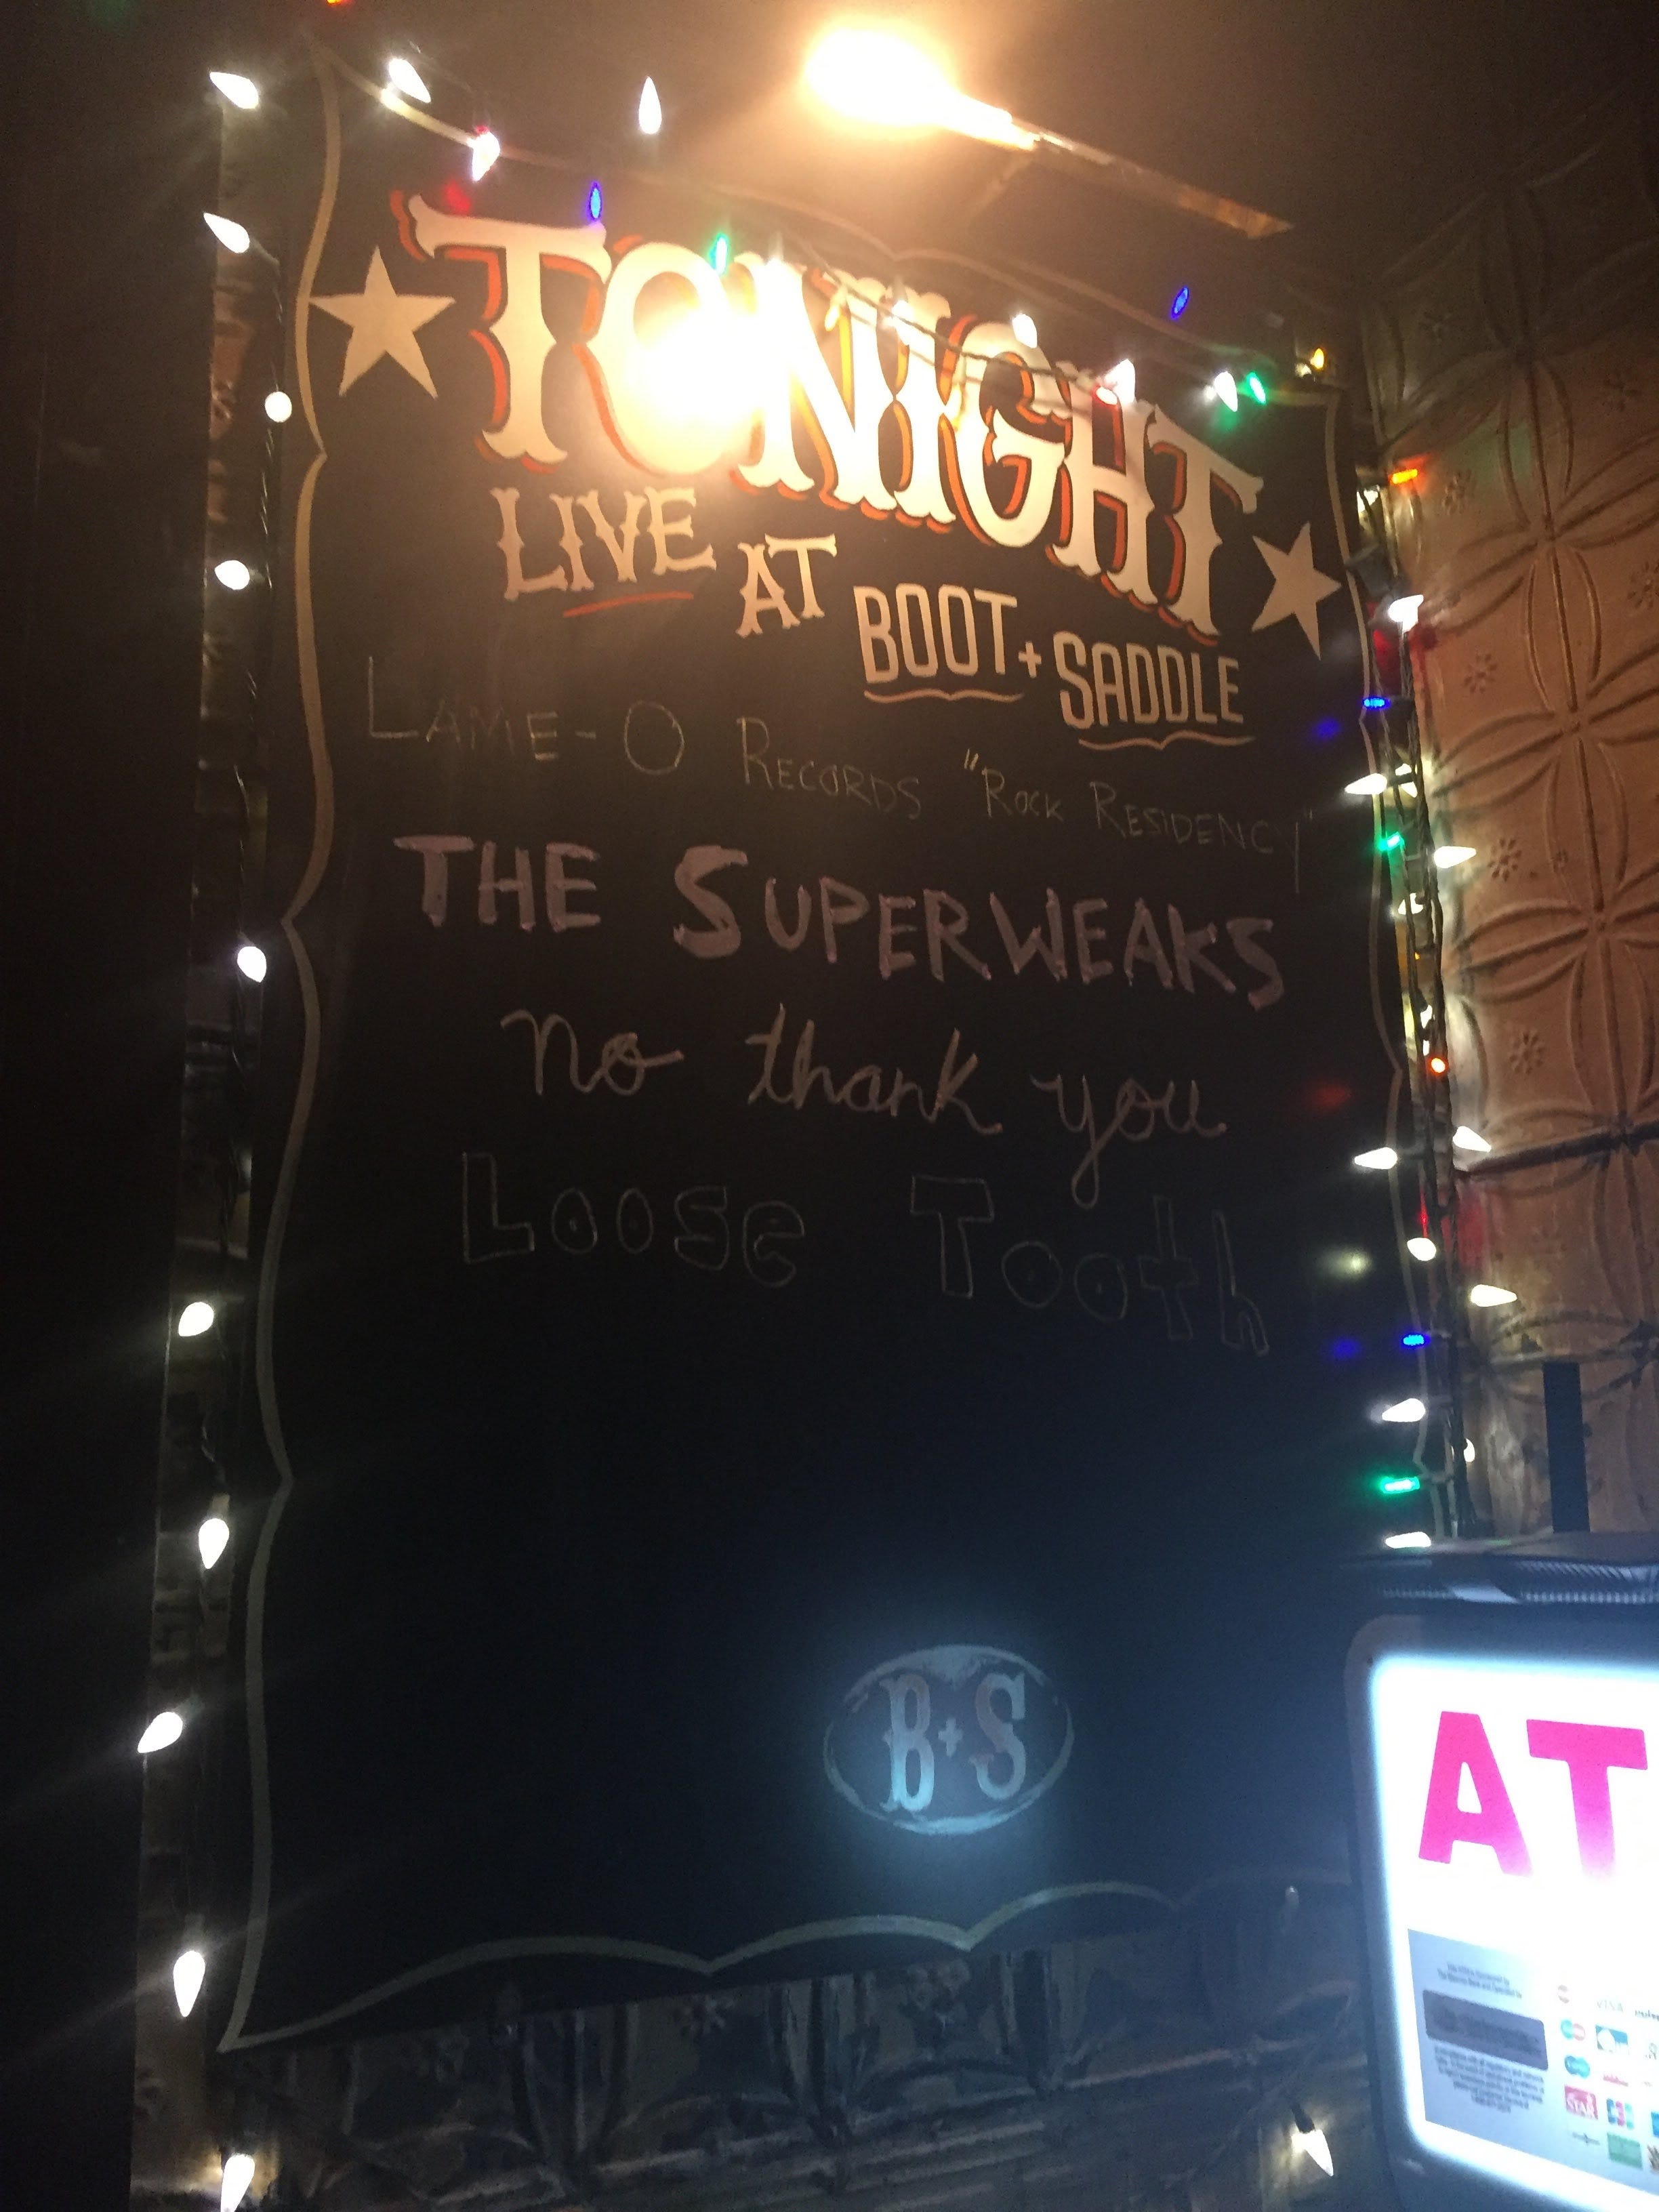 TONIGHT
LIVE AT BOOT + SADDLE
LAME-O RECORDS "ROCK RESIDENCY"
THE SUPERWEAKS
no thank you
Loose Tooth
B+S
AT
VISA
STAR
JCB